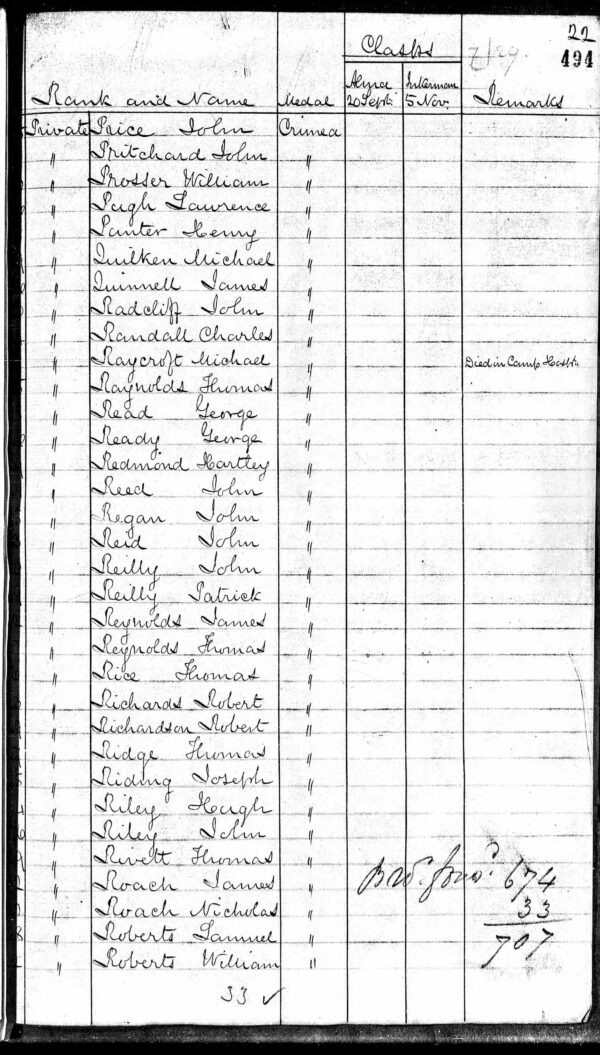 22
Clasps 7/29.
494
Rank and Name Medal Alma 20 Sept. Inkerman 5 Nov. Remarks
Private Price John Crimea
" Pritchard John "
" Prosser William "
" Pugh Lawrence "
" Punter Henry "
" Quilken Michael "
" Quinnell James "
" Radcliff John "
" Randall Charles "
" Raycroft Michael " Died in Camp Hospl.
" Raynolds Thomas "
" Read George "
" Ready George "
" Redmond Hartley "
" Reed John "
" Regan John "
" Reid John "
" Reilly John "
" Reilly Patrick "
" Reynolds James "
" Reynolds Thomas "
" Rice Thomas "
" Richards Robert "
" Richardson Robert "
" Ridge Thomas "
" Riding Joseph "
" Riley Hugh "
" Riley John "
" Rivett Thomas "
" Roach James " Brt. forwd. 674
" Roach Nicholas " 33
" Roberts Samuel " 707
" Roberts William "
33 ✓